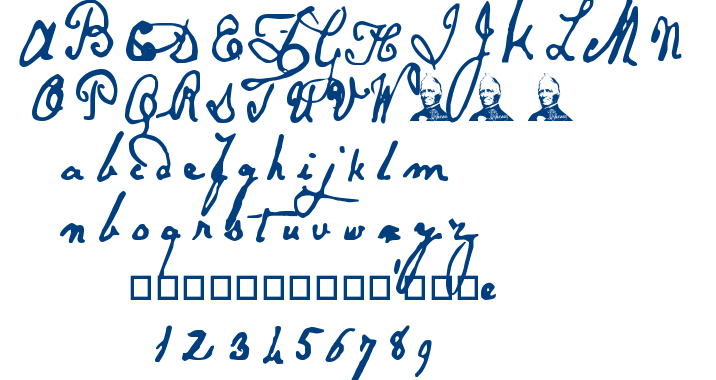 A B C D E F G H I J K L M N
O P Q R S T U V W
a b c d e f g h i j k l m
n b o q r s t u v w x y z
' e
1 2 3 4 5 6 7 8 9